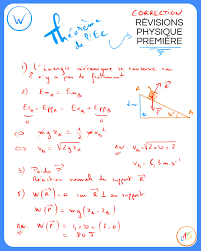 W
CORRECTION
Théorème de l'Ec
RÉVISIONS
PHYSIQUE
PREMIÈRE
1) L'énergie mécanique se conserve car
il n'y a pas de frottement
2) EmA = EmB
EcA + EppA = EcB + EppB
mgzA = 1/2 m vB²
AN vB = √2×10×2
vB = 6,3 m.s⁻¹
3) Poids P
Réaction normale du support R
W(R) = 0 car R ⊥ au support
W(P) = mg(zA - zB)
AN: W(P) = 4×10×(2-0)
= 80 J